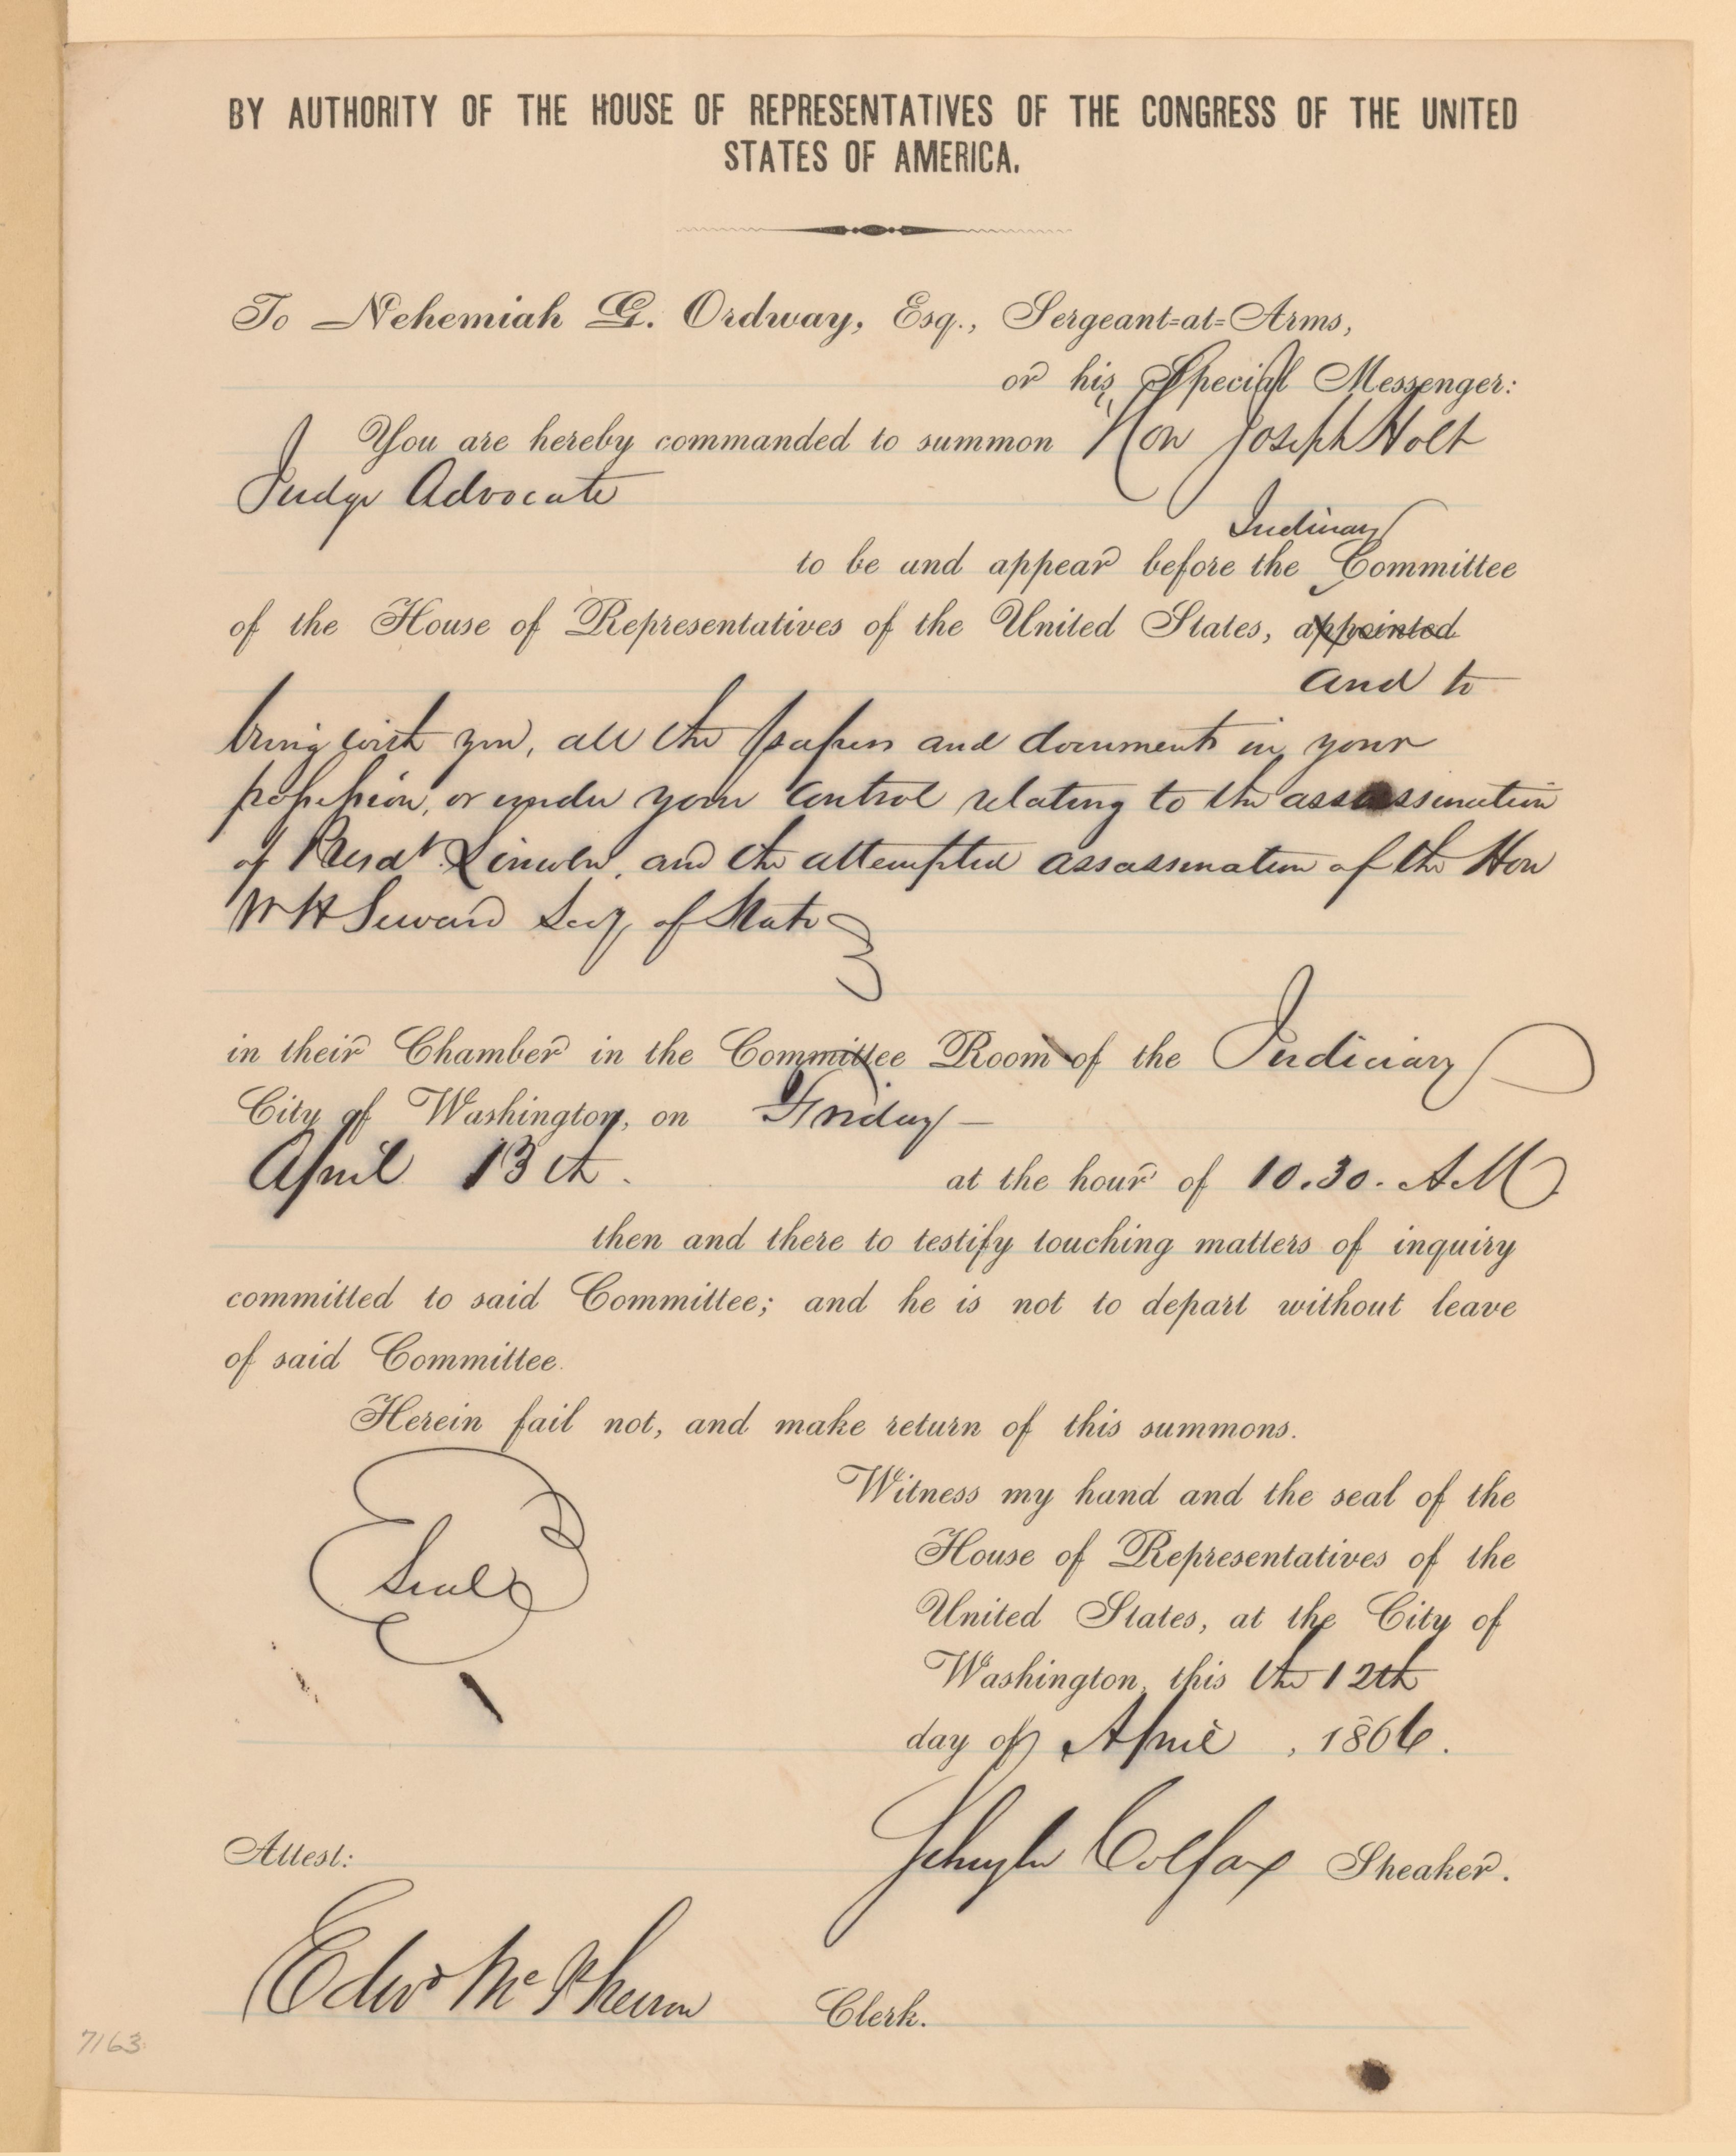 BY AUTHORITY OF THE HOUSE OF REPRESENTATIVES OF THE CONGRESS OF THE UNITED
STATES OF AMERICA.
To Nehemiah G. Ordway, Esq., Sergeant-at-Arms,
or his Special Messenger:
You are hereby commanded to summon Hon Joseph Holt
Judge Advocate
Judiciary
to be and appear before the Committee
of the House of Representatives of the United States, appointed
and to
bring with you, all the papers and documents in your
possession, or under your control relating to the assassination
of Presdt. Lincoln, and the attempted assassination of the Hon
W H Seward Secy of State
in their Chamber in the Committee Room of the Judiciary
City of Washington, on Friday —
April 13th. at the hour of 10.30. A M
then and there to testify touching matters of inquiry
committed to said Committee; and he is not to depart without leave
of said Committee.
Herein fail not, and make return of this summons.
Witness my hand and the seal of the
House of Representatives of the
United States, at the City of
Washington, this the 12th
day of April , 1866.
Seal
Schuyler Colfax Speaker.
Attest:
Edwd McPherson Clerk.
7163